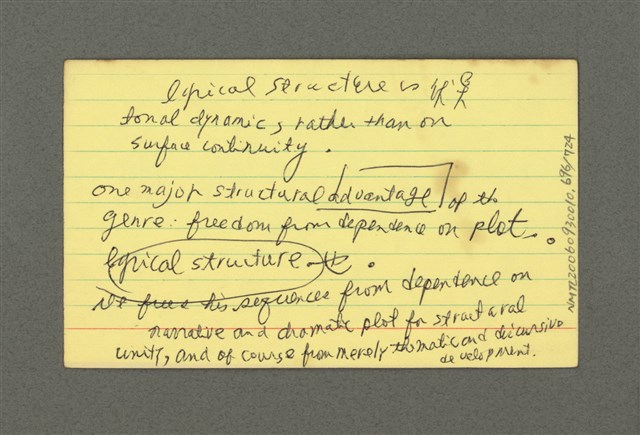 lyrical structure is 依靠
tonal dynamics rather than on
surface continuity.
one major structural advantage of the
genre: freedom from dependence on plot.
lyrical structure
his sequences from dependence on
narrative and dramatic plot for structural
unity, and of course from merely thematic and dicursive
development.
NMTL20060930010, 696/724